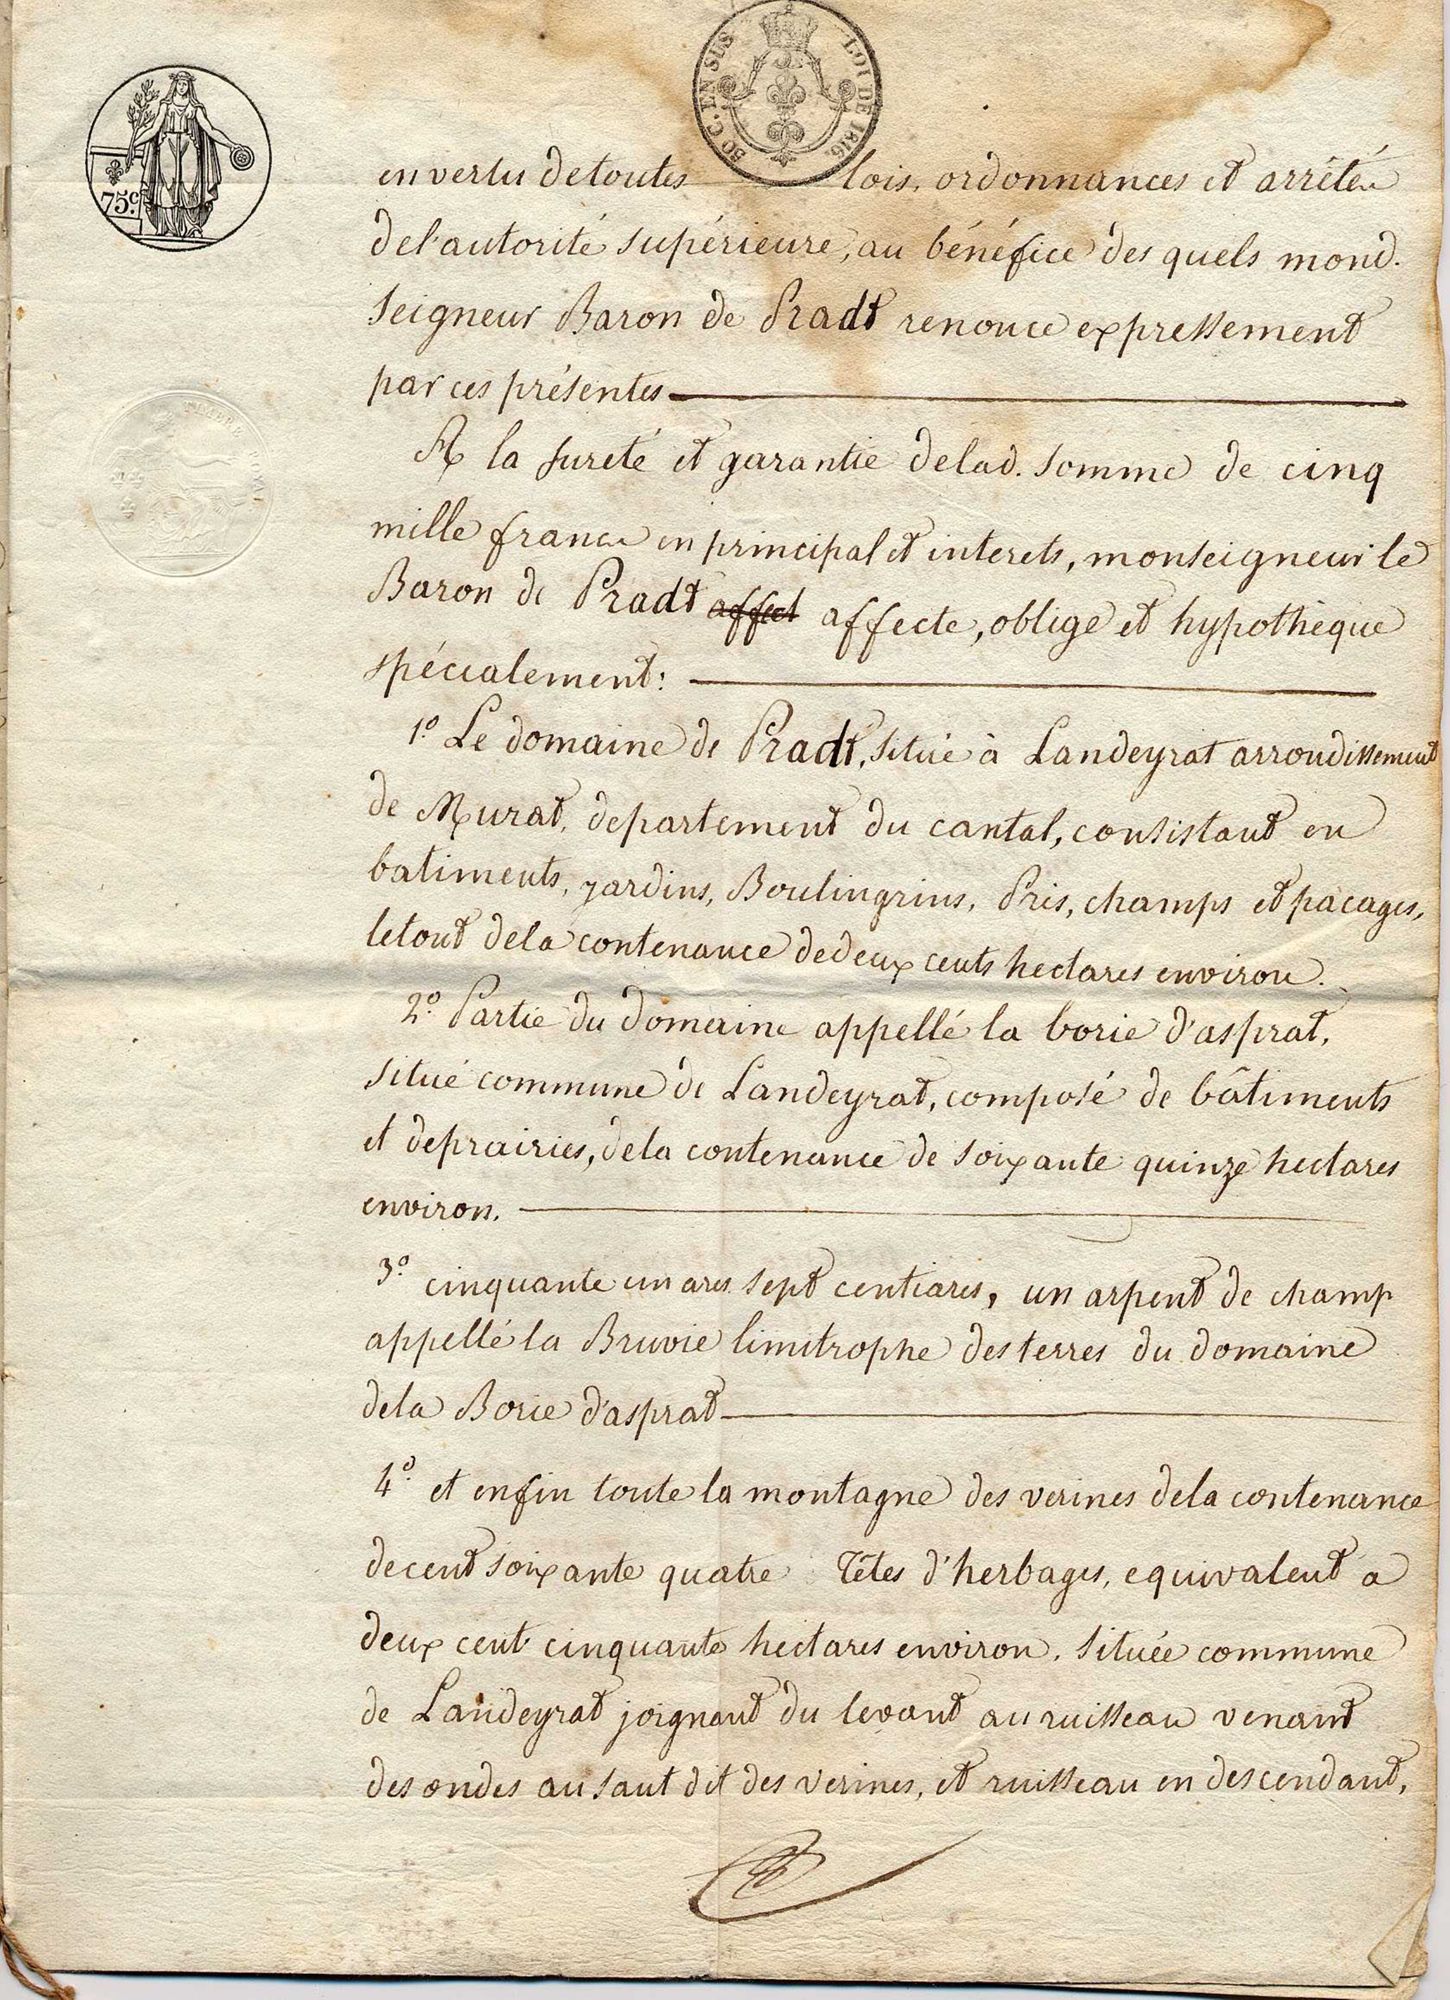 50 C. EN SUS LOI DE 1816.
75 c.
TIMBRE ROYAL
en vertu de toutes lois, ordonnances et arrêtés
de l'autorité supérieure, au bénéfice des quels mond.
Seigneur Baron de Pradt renonce expressement
par ces présentes
A la sureté et garantie de lad. somme de cinq
mille francs en principal et interets, monseigneur le
Baron de Pradt affect affecte, oblige et hypothèque
spécialement:
1.º Le domaine de Pradt, situé à Landeyrat arrondissement
de Murat, departement du cantal, consistant en
batiments, jardins, Boulingrins, Prés, champs et pacages,
le tout de la contenance de deux cents hectares environ.
2.º Partie du domaine appellé la borie d'asprat,
situé commune de Landeyrat, composé de bâtiments
et de prairies, de la contenance de soixante quinze hectares
environ.
3.º cinquante un ares sept centiares, un arpent de champ
appellé la Bruvie limitrophe des terres du domaine
de la Borie d'asprat
4.º et enfin toute la montagne des verines de la contenance
de cent soixante quatre Têtes d'herbages, equivalent a
deux cent cinquante hectares environ, située commune
de Landeyrat joignant du levant au ruisseau venant
des ondes au saut dit des verines, et ruisseau en descendant,